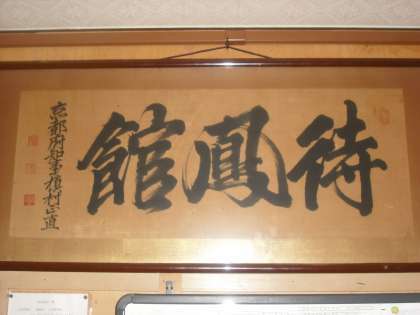 待鳳館
京都府知事槇村正直